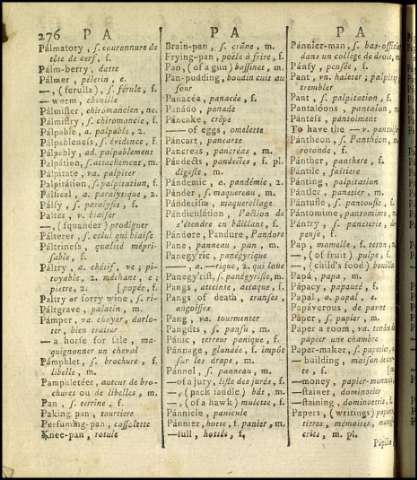 276 P A
P A
P A
Pálmatory, s. couronnure de
tête de cerf, f.
Palm-berry, datte
Pálmer, pélerin, e.
—, (ferulla), s. férule, f.
— worm, chenille
Pálmister, chiromancien, ne.
Pálmistry, s. chiromancie, f.
Pálpable, a. palpable, 2.
Pálpableness, s. évidence, f.
Pálpably, ad. palpablement
Palpátion, s. attachement, m.
Pálpitate, va. palpiter
Palpitátion, s. palpitation, f.
Pálsical, a. paralytique, 2.
Pálsy, s. paralysie, f.
Pálter, v. biaiser
—, (squander) prodiguer
Pálterer, s. celui qui biaise
Páltriness, qualité mépri-
sable, f.
Páltry, a. chétif, ve; pi-
toyable, 2. méchant, e;
piètre, 2. [popée, f.
Paltry or sorry wine, s. ri-
Páltgrave, palatin, m.
Pámper, va. choyer, dorlo-
ter, bien traiter
— a horse for sale, ma-
quignonner un cheval
Pámphlet, s. brochure, f.
libelle, m.
Pamphletéer, auteur de bro-
chures ou de libelles, m.
Pan, s. terrine, f.
Paking pan, tourtiere
Perfuming-pan, cassolette
Knee-pan, rotule
Brain-pan, s. crâne, m.
Frying-pan, poéle à frire, f.
Pan, (of a gun) bassinet, m.
Pan-pudding, boudin cuit au
four
Panacéa, panacée, f.
Panádo, panade
Páncake, crêpe
—— of eggs, omelette
Páncart, pancarte
Páncreas, pancréas, m.
Pándects, pandectes, f. pl.
digeste, m.
Pandémic, a. pandémie, 2.
Pánder, s. maquereau, m.
Pánderism, maquerellage
Pándiculation, l'action de
s'étendre en bâillant, f.
Pandore, Pandure, Pandore
Pane, panneau, pan, m.
Panegyric, panégyrique
——, a. —rique, 2. qui loue
Panegyrist, s. panégyriste, m.
Pangs, atteinte, attaque, f.
Pangs of death, transes,
angoisses
Pang, va. tourmenter
Pangúts, s. pansu, m.
Pánic, terreur panique, f.
Pánnage, glandée, f. impôt
sur les draps, m.
Pánnel, s. panneau, m.
—of a jury, liste des jurés, f.
—, (pack saddle) bât, m.
—, (of a hawk) mulette, f.
Pánnicle, panicule
Pánnier, horse, s. panier, m.
—full, hottée, f.
Pánnier-man, s. bas-officier
dans un college de droit, m.
Pánsy, pensée, f.
Pant, vn. haleter, palpiter
trembler
Pant, s. palpitation, f.
Pantaloons, pantalon,
Pántess, pantoiment
To have the —v. pantoise
Pántheon, s. Panthéon,
rotonde, f.
Pánther, panthere, f.
Pántile, faîtiere
Pánting, palpitation
Pántler, panetier, m.
Pantúfle, s. pantoufle, f.
Pántomime, pantomime,
Pántry, s. panneterie, de-
pense, f.
Pap, mamelle, f. teton, 2.
—, (of fruit) pulpe, f.
—, (child's food) bouillie
Papá, papa, m.
Pápacy, papauté, f.
Pápal, a. papal, e.
Papáverous, de pavot
Páper, s. papier, m.
Paper a room, va. tendre
papier une chambre
Paper-maker, s. papetier,
—building, maison
terie
—money, papier-monnoie
—stainer, dominotier
—staining, dominoterie, f.
Papers, (writings) papiers
titres, mémoires,
crits, m. pl.